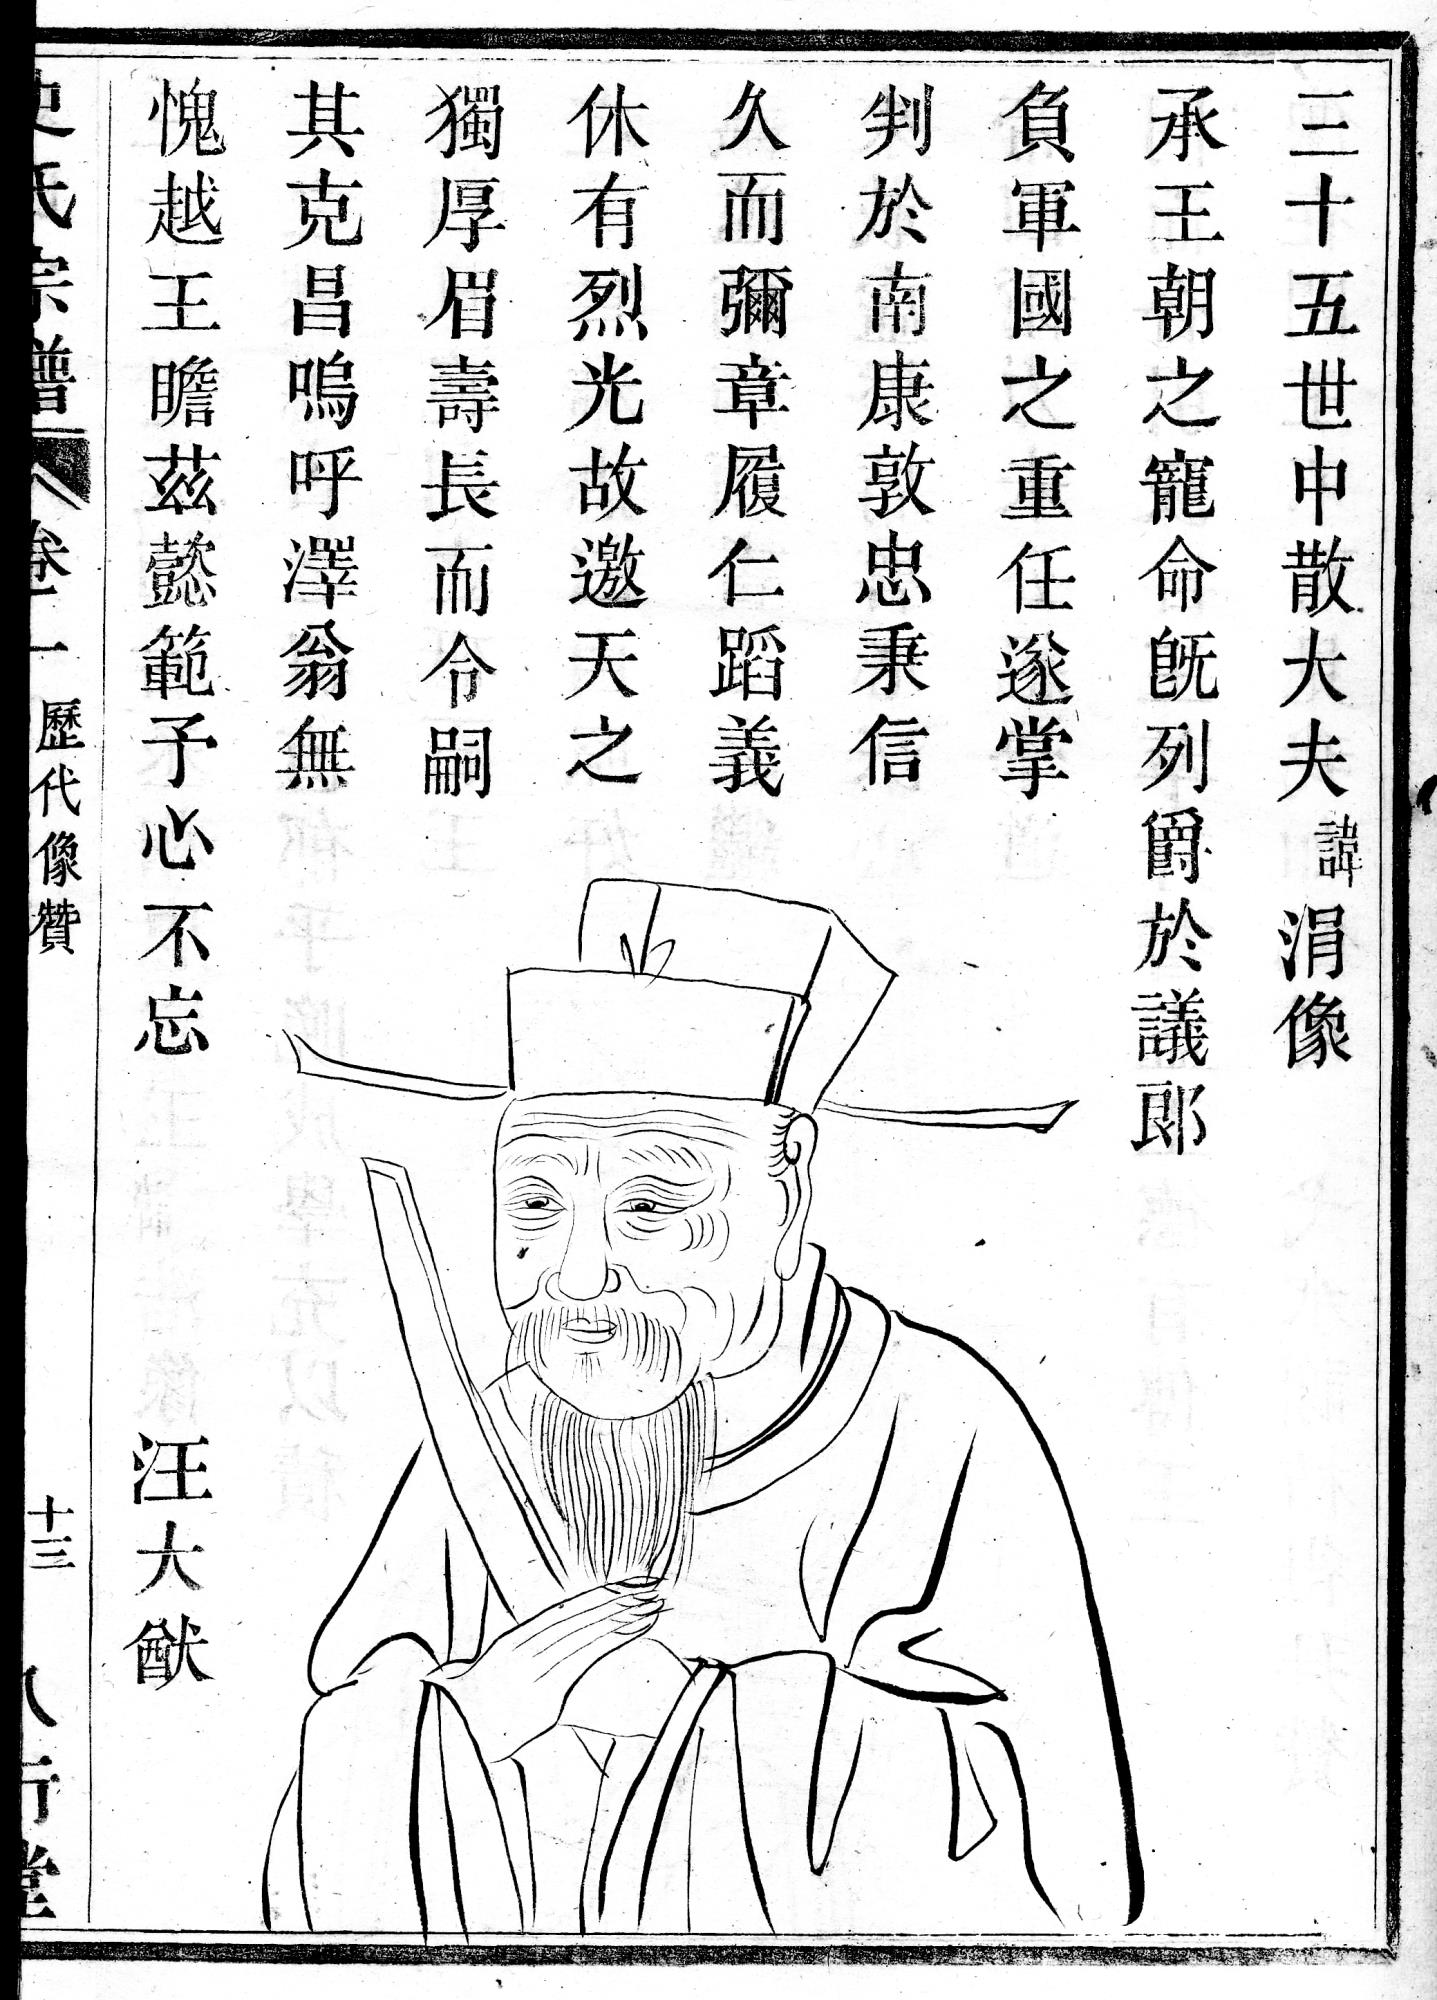 三十五世中散大夫諱涓像
承王朝之寵命旣列爵於議郎
負軍國之重任遂掌
判於南康敦忠秉信
久而彌章履仁蹈義
休有烈光故邀天之
獨厚眉壽長而令嗣
其克昌嗚呼澤翁無
愧越王瞻茲懿範予心不忘
汪大猷
史氏宗譜 卷一 歷代像贊 十三 八行堂